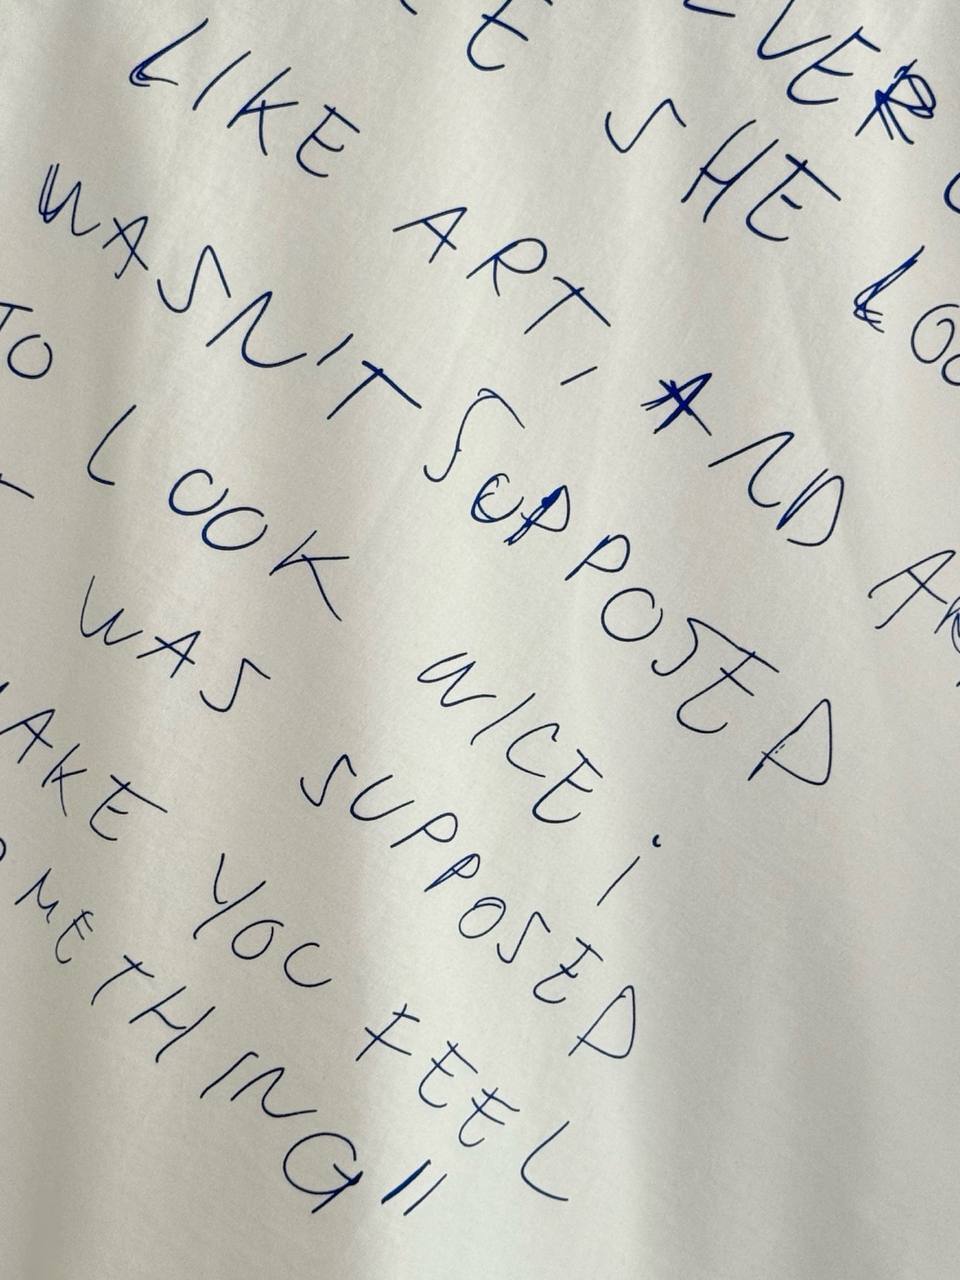 EVER
E SHE LOO
LIKE ART, AND AR
WASN'T SUPPOSED
TO LOOK NICE ;
WAS SUPPOSED
AKE YOU FEEL
OMETHING"